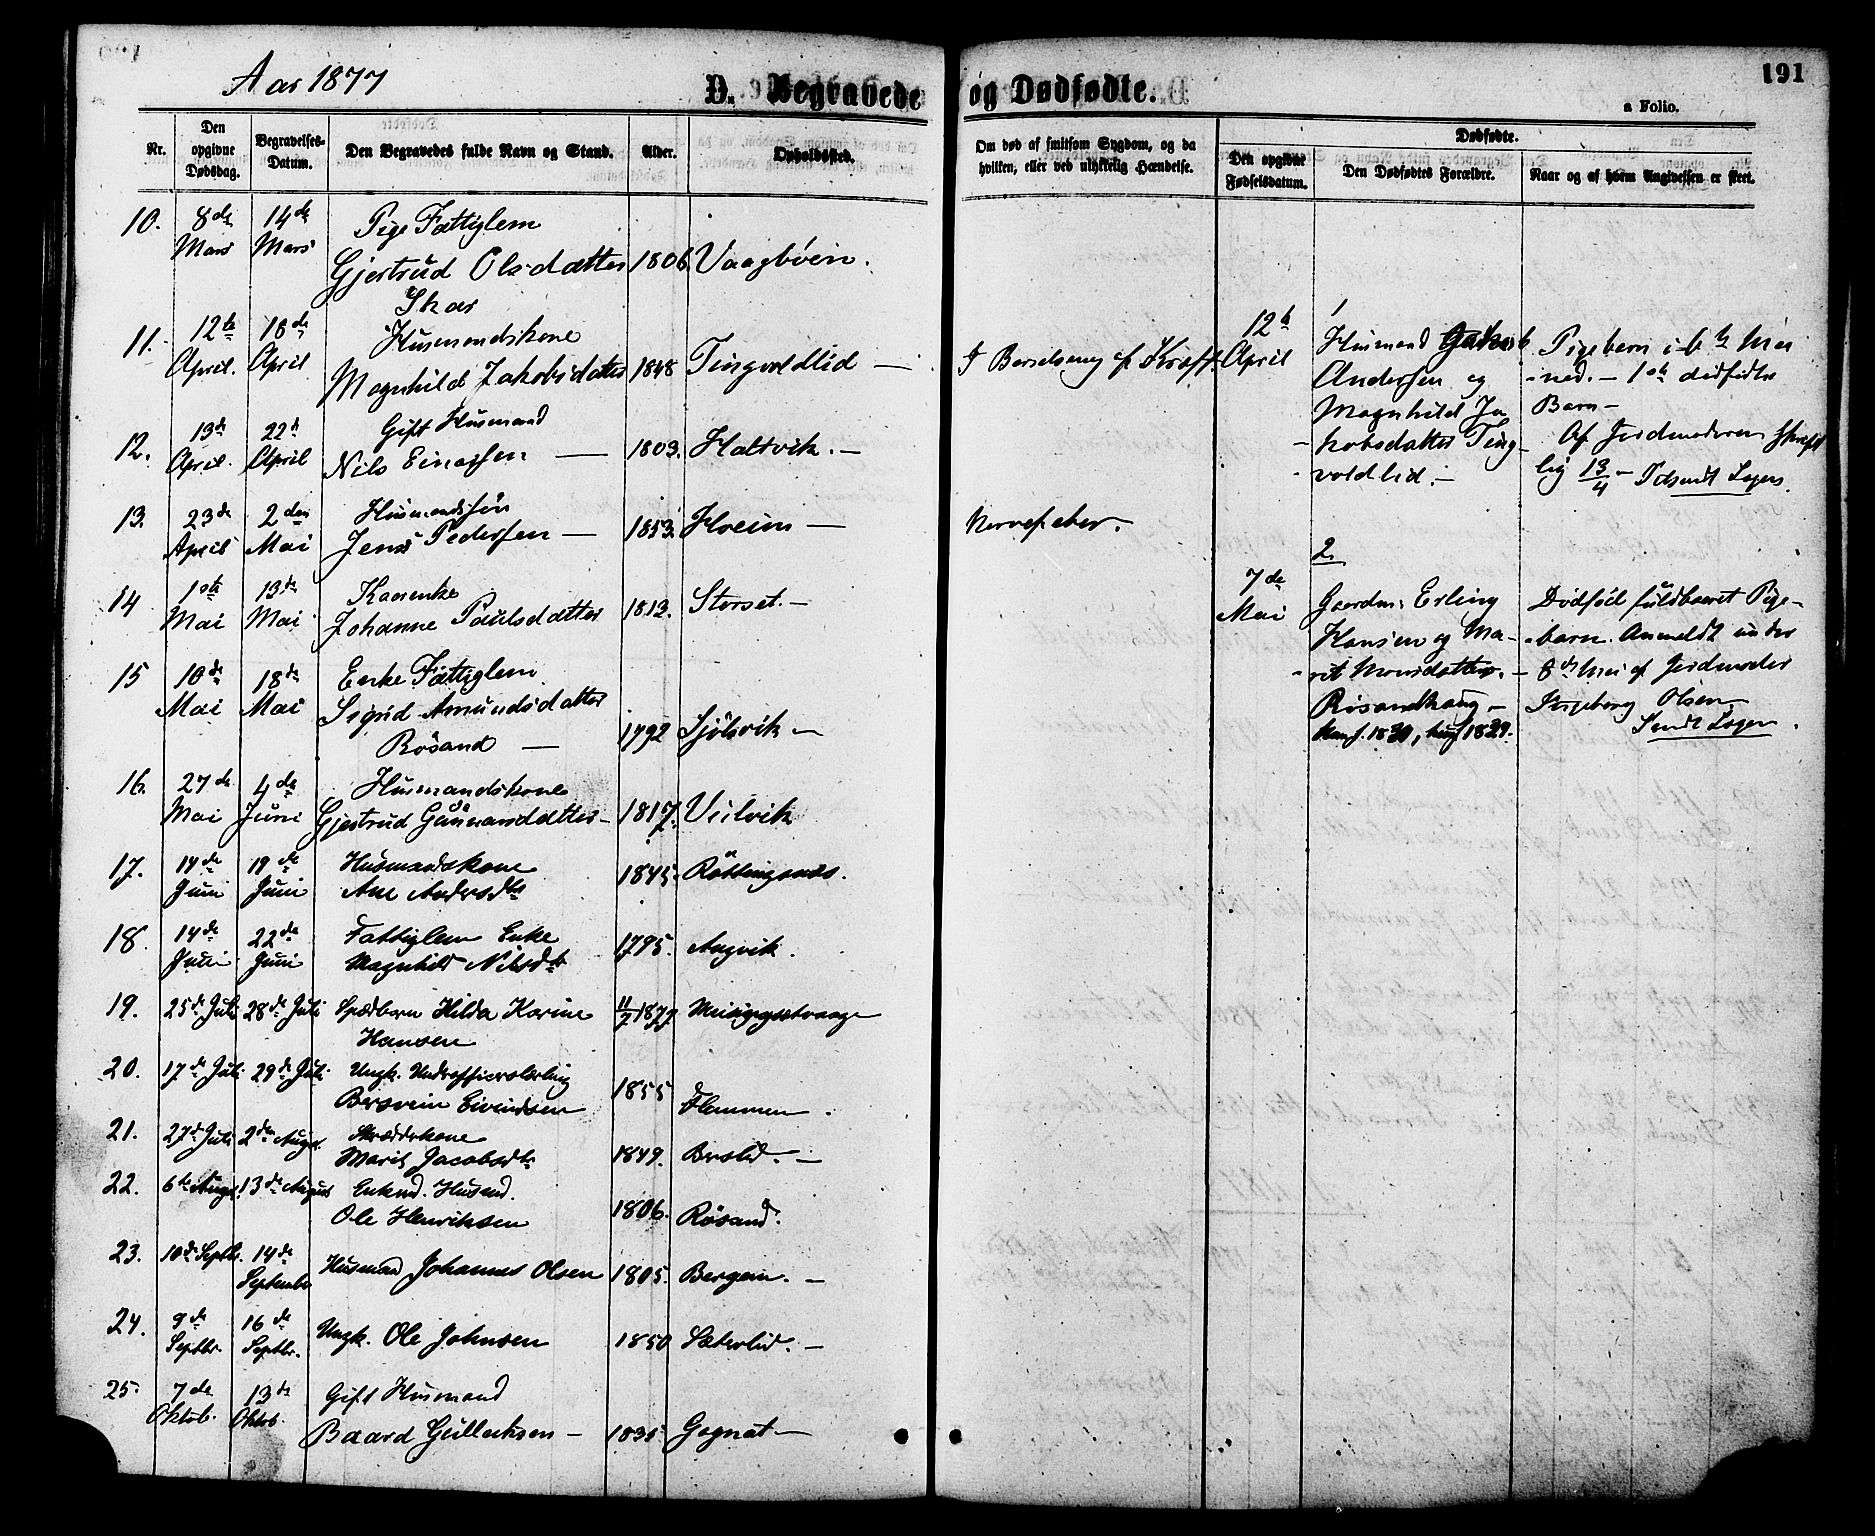 Aar 1877
D. Begravede og Dødfødte.
191
a Folio.
Nr.
Den opgivne Dødsdag.
Begravelses-Datum.
Den Begravedes fulde Navn og Stand.
Alder.
Opholdssted.
Om død af smitsom Sygdom, og da hvilken, eller ved ulykkelig Hændelse.
Dødfødte.
Den opgivne Fødselsdatum.
Den Dødfødtes Forældre.
Naar og af hvem Angivelsen er skeet.
10. 8de 14de Pige Fattiglem
Mars Mars Gjertrud Olsdatter 1806 Vaagbøen.
Skar
11. 12te 18de Husmandskone
April. April Magnhild Jakobsdatter 1848 Tingvoldlid —
12. 13de 22d Gift Husmand
April. April Nils Einarsen — 1803. Holtvik. —
13. 23de 2den Husmandssøn
April Mai Jens Pedersen — 1853. Hoeim —
14 1ste 13de Kaarenke
Mai Mai Johanne Paulsdatter 1813. Storset. —
15 10de 18de Enke Fattiglem
Mai Mai Sigrid Amundsdatter
Røsand — 1792 Sjølsvik —
16. 27de 4de Husmandskone
Mai Juni Gjertrud Gunnarsdatter — 1817. Vulvik
17. 14de 19de Husmandskone
Juni Juni Ane Andersdtr 1845. Røttingsnes.
18. 14de 22de Fattiglem Enke
Juni Juni Magnhild Nilsdtr 1795. Angvik.
19. 25de Juli 28de Juli Spædbarn Hilda Karine 11/7 1877 Meisingsetvaage
Hansen
20. 17de Juli 29de Juli Ungk. Underofficerslærling
Bersvein Eivindsen 1855 Flemmen.
21. 27de Juli 2den August Skræddrkone
Marit Jacobsdtr 1849. Berslid. —
22. 6te August 13de August Enkmd. Husmd.
Ole Henriksen 1806. Røsand.
23. 10de Septbr. 14de
September Husmand Johannes Olsen 1805. Bergem. —
24. 9de 16de
Septbr. Septbr. Ungk. Ole Johnsen 1850 Sæterlid. —
25. 7de 13de Gift Husmand
Oktob. Oktob. Baard Gulleiksen — 1835 Gagnat —
I Barselseng af Kræft.
Nervefeber.
12te
April
1
Husmand Jakob
Andersen og
Magnhild Ja
kobsdatter Ting
voldlid. —
Pigebarn i 6te Maa
ned. — 1ste dødfødte
Barn —
Af Jordmoderen skrift
lig 13/4 — Tilsendt Lagen
2
7de
Mai
Gaardm: Erling
Hansen og Ma-
rit Monsdatter. —
Røsandhaug —
Manf. 1830, Kuf 1829.
Dødfød fuldbaaret Pige-
barn. Anmeldt under
8de Mai af Jordmoder
Ingeborg Olsen
Sendt Lagen.